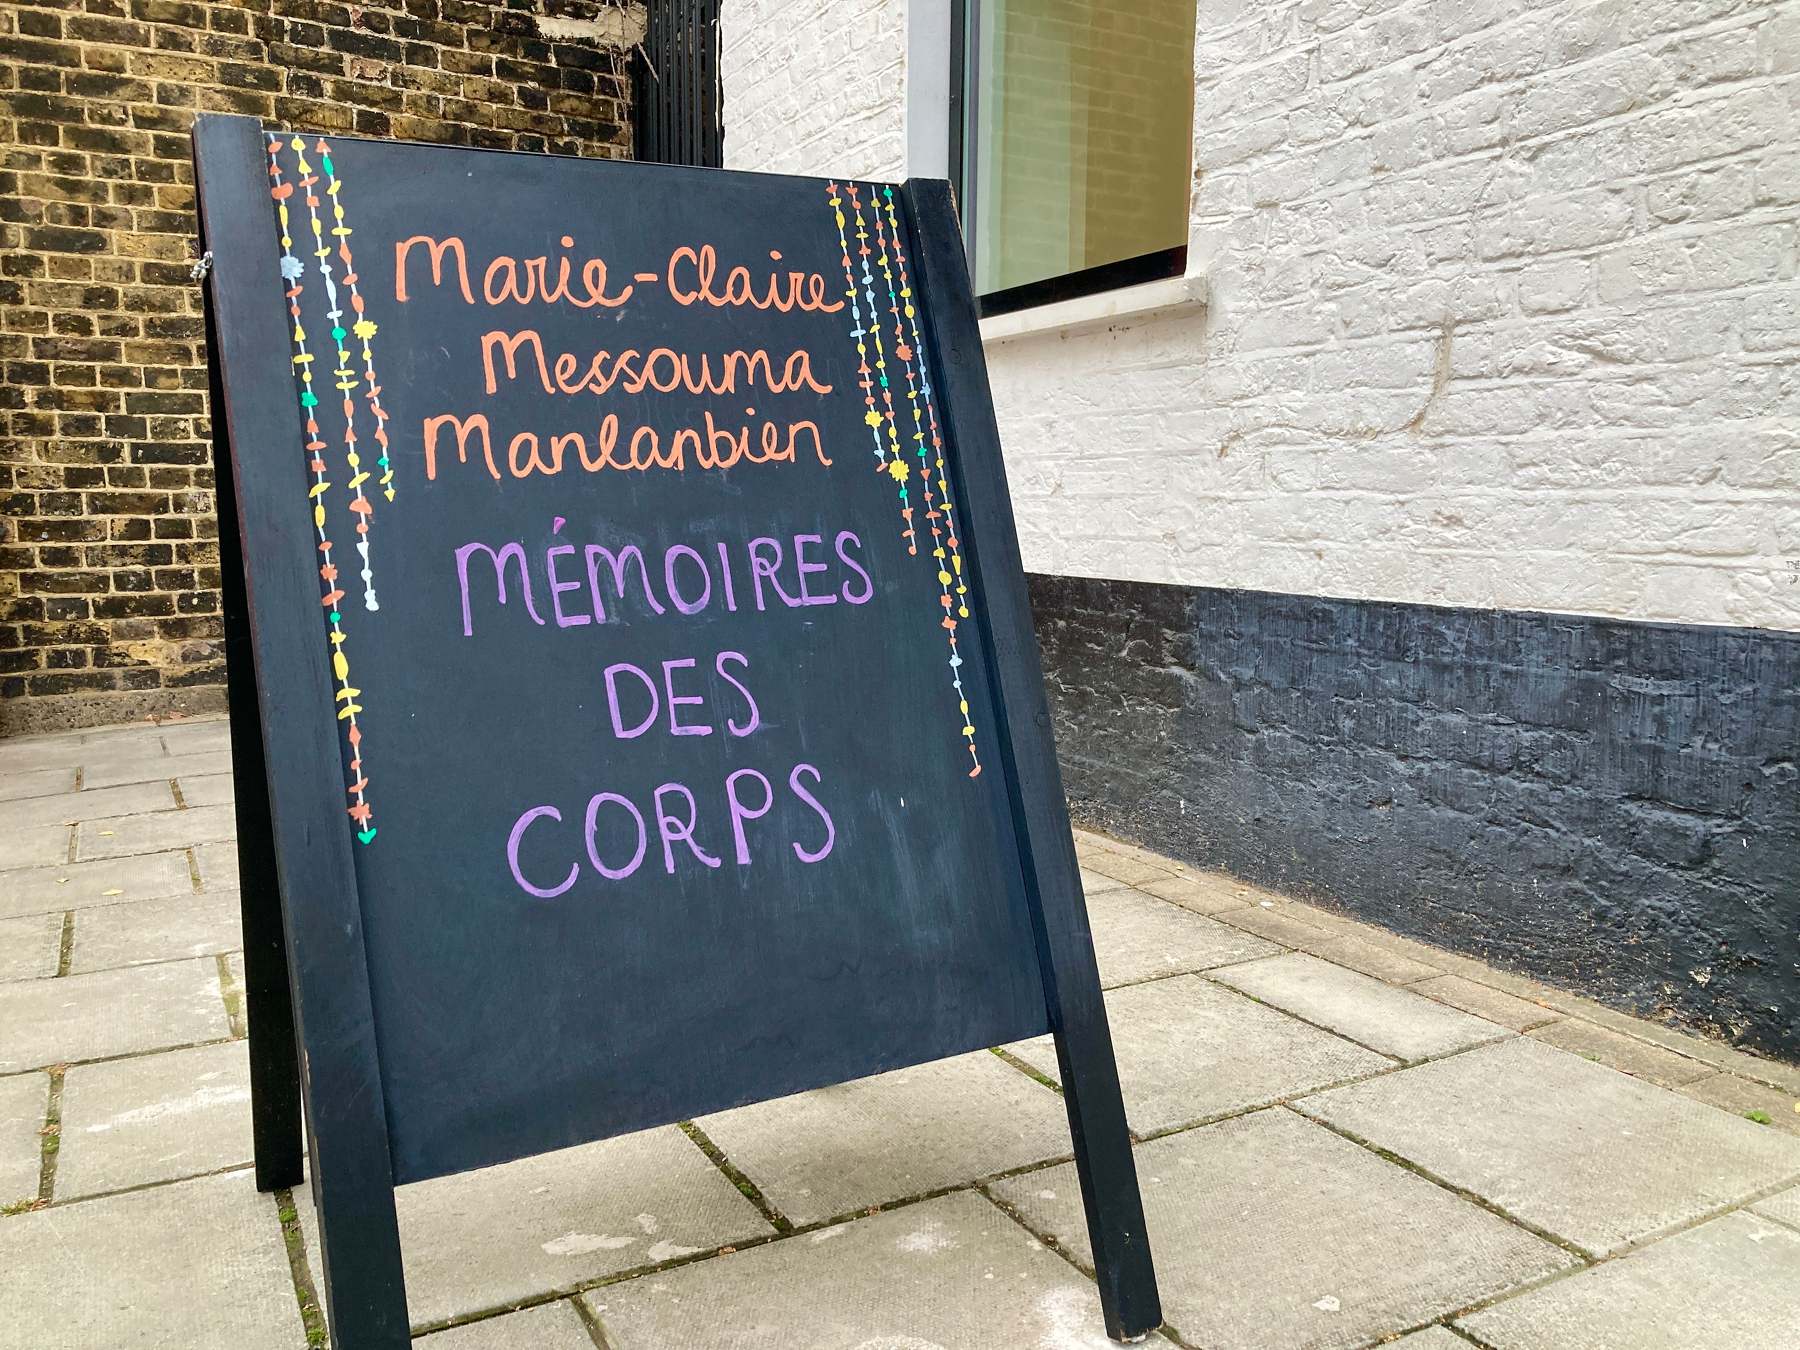 Marie-Claire
Messouma
Manlanbien
MÉMOIRES
DES
CORPS